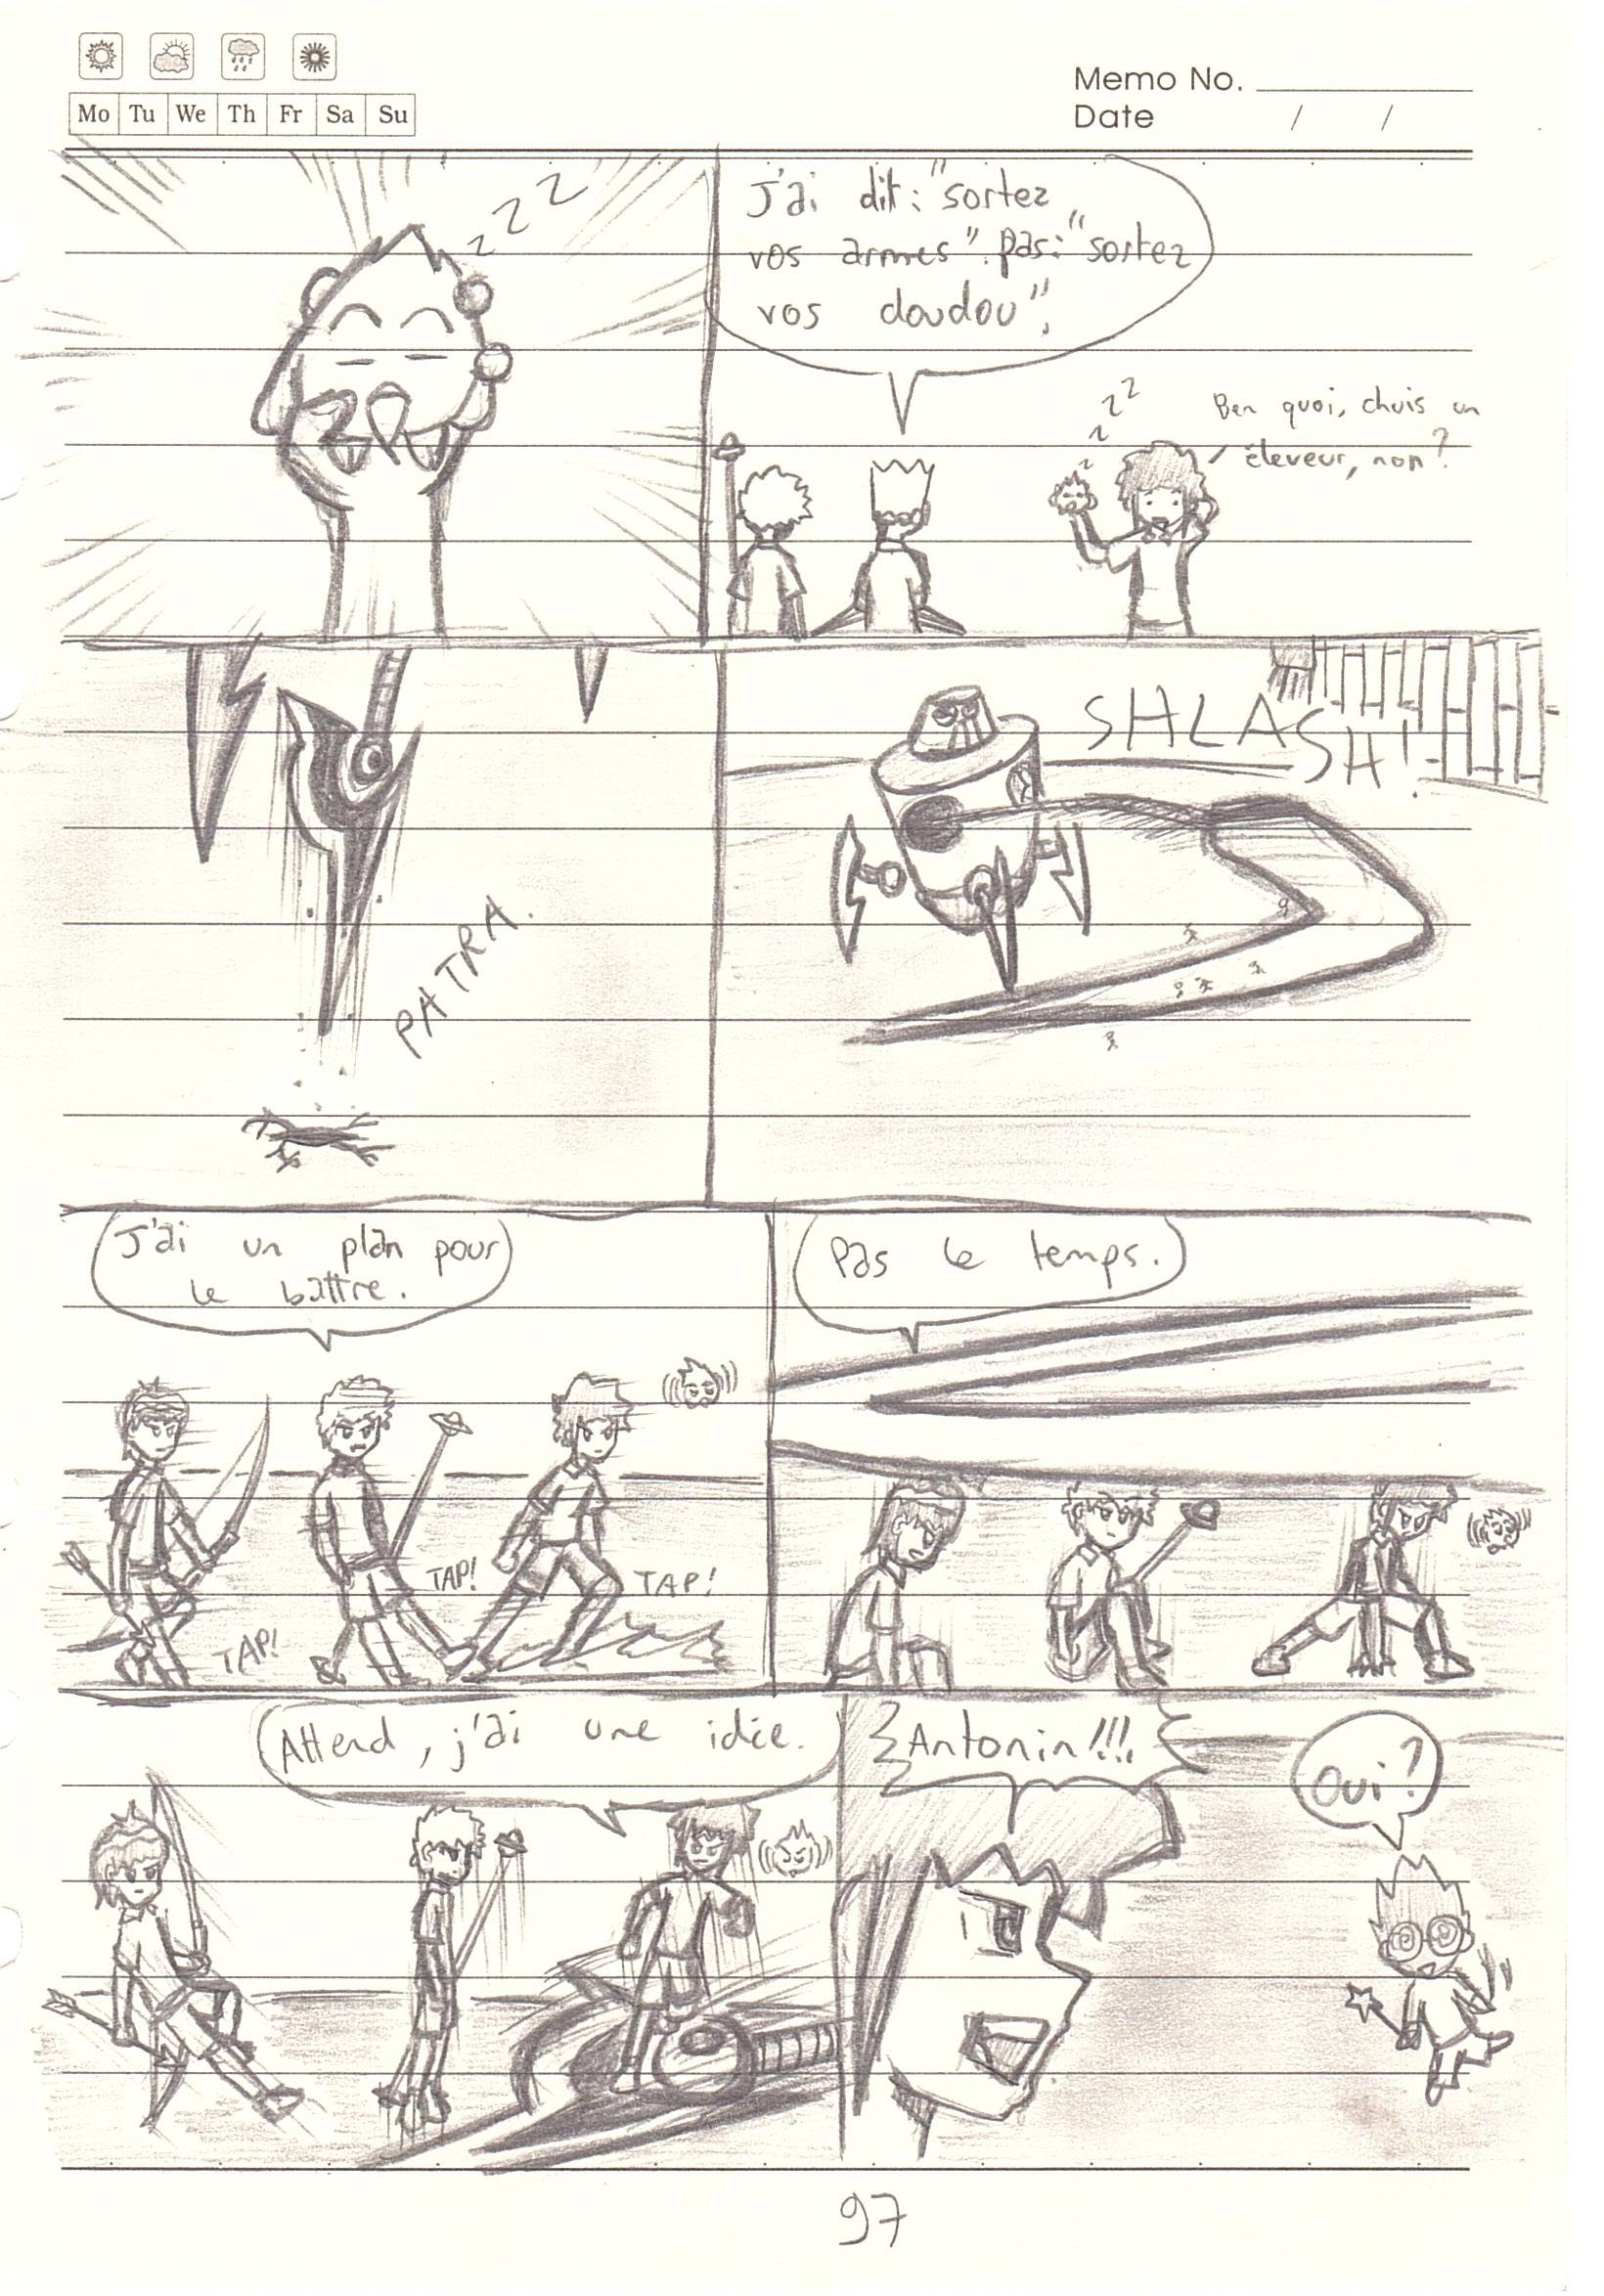 Mo Tu We Th Fr Sa Su
Memo No.
Date / /
z z z
J'ai dit : "sortez
vos armes". pas : "sortez
vos doudou".
z z z z
Ben quoi, chuis un
éleveur, non ?
PATRA.
SHLASH!
J'ai un plan pour
le battre.
TAP!
TAP!
TAP!
Pas le temps.
Attend, j'ai une idée.
Antonin!!!
Oui?
97